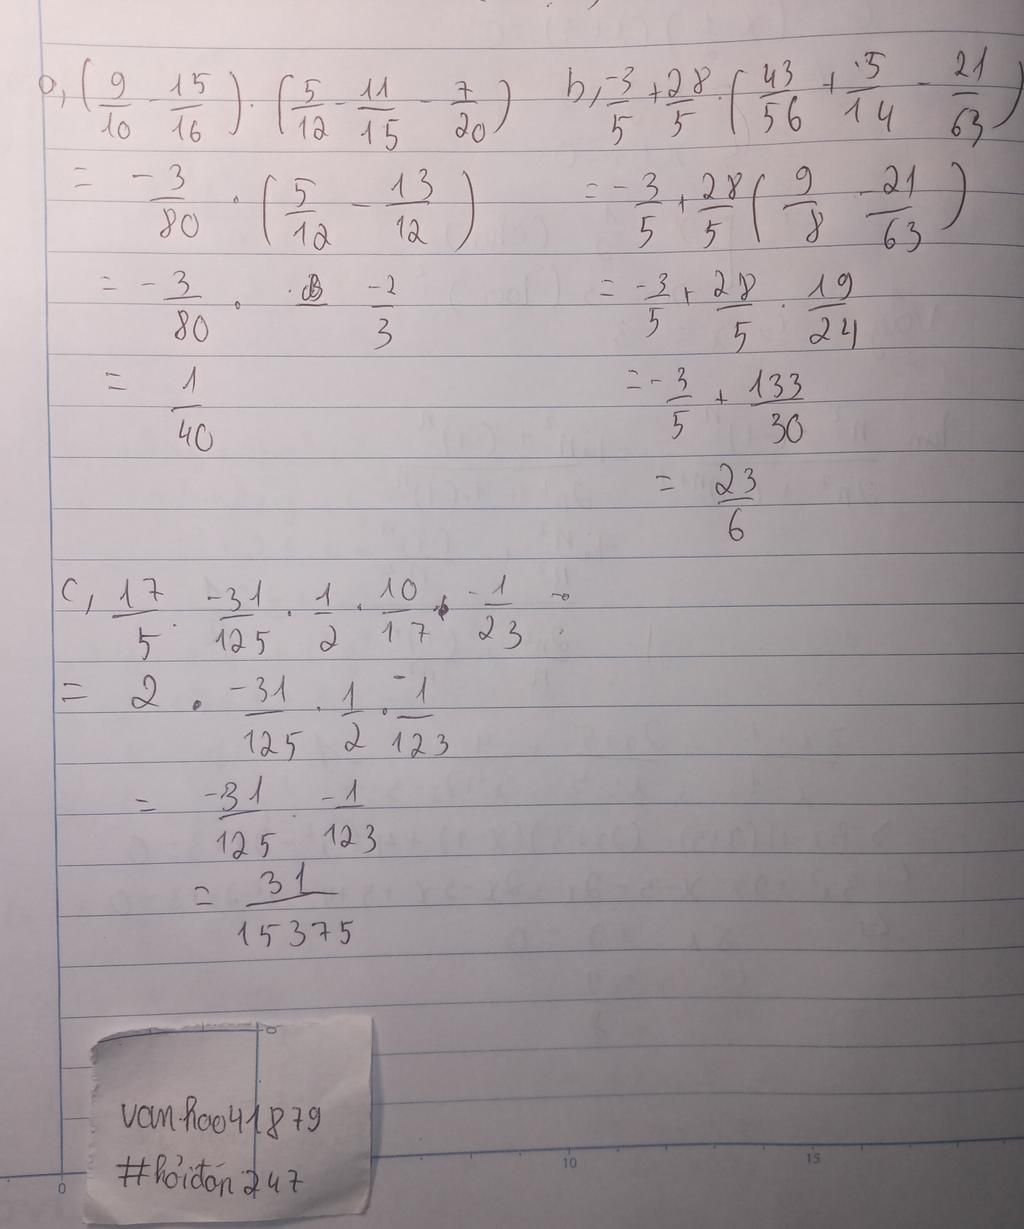 a, (9/10 - 15/16) . (5/12 - 11/15 - 7/20)
= -3/80 . (5/12 - 13/12)
= -3/80 . -2/3
= 1/40
b, -3/5 + 28/5 . (43/56 + 5/14 - 21/63)
= -3/5 + 28/5 (9/8 - 21/63)
= -3/5 + 28/5 . 19/24
= -3/5 + 133/30
= 23/6
c, 17/5 . -31/125 . 1/2 . 10/17 . -1/23
= 2 . -31/125 . 1/2 . -1/123
= -31/125 . -1/123
= 31/15375
vanhao41879
#hỏiđán247
0 10 15